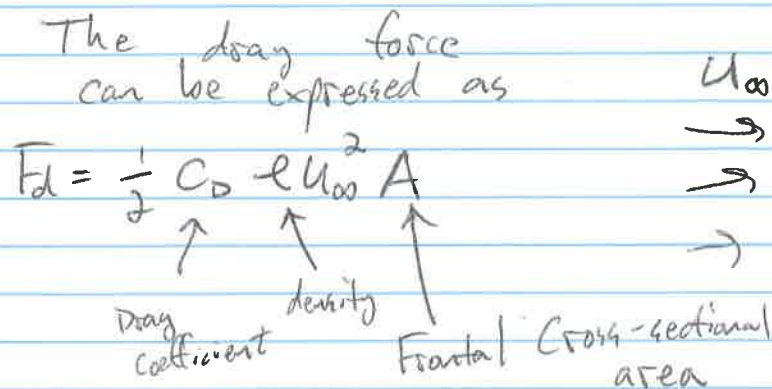 The drag force
can be expressed as
U∞
Fd = 1/2 CD ρ U∞² A
Drag
coefficient
density
Frontal Cross-sectional
area